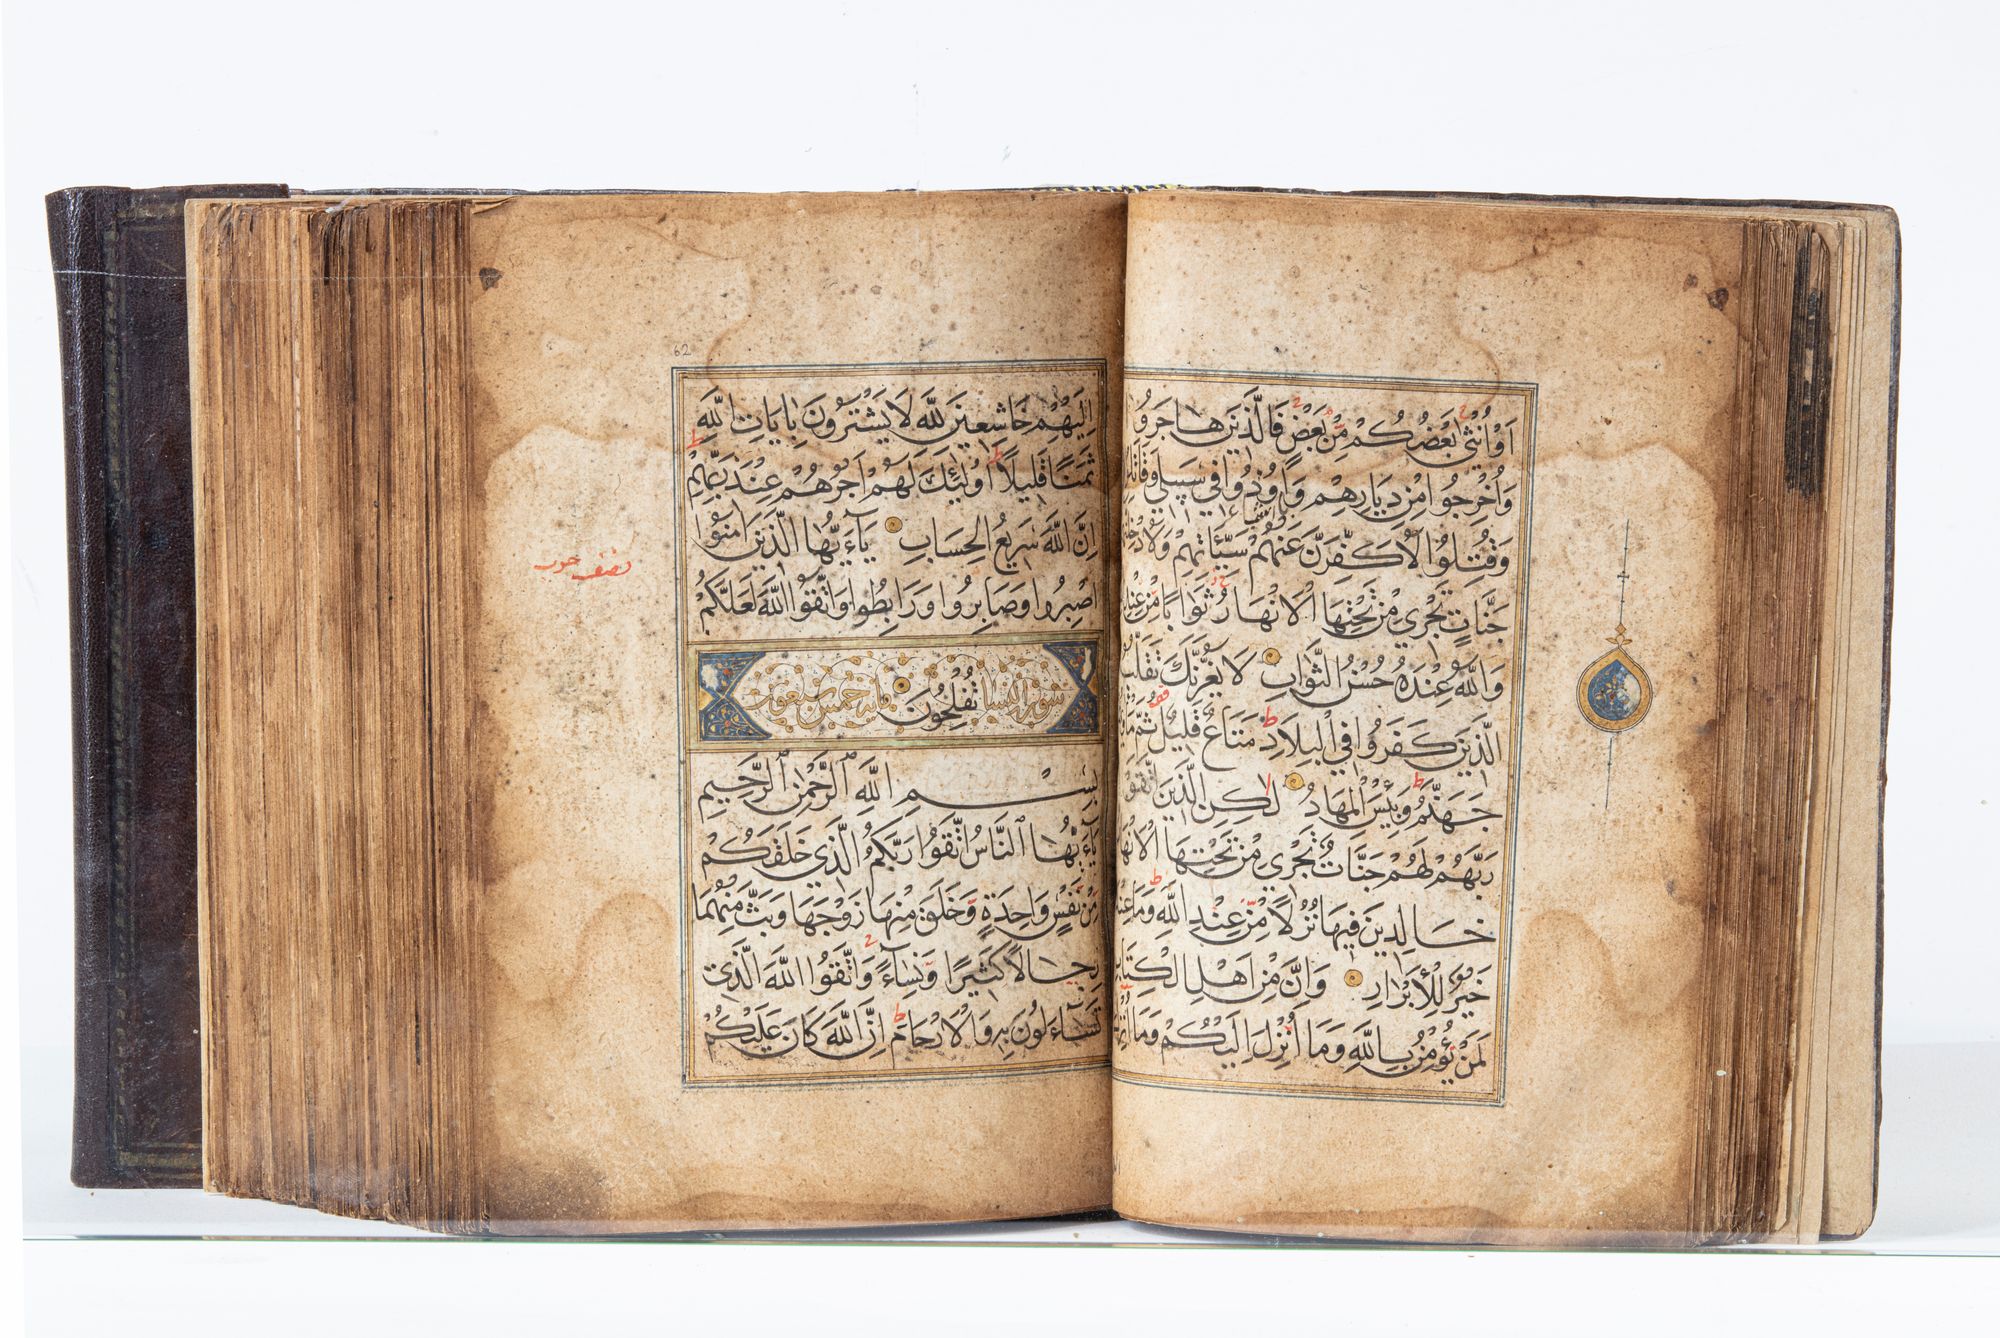 اَوْ اُنْثٰى بَعْضُكُمْ مِنْ بَعْضٍ فَالَّذِينَ هَاجَرُوا
وَاُخْرِجُوا مِنْ دِيَارِهِمْ وَاُوذُوا فِي سَبِيلِي وَقَاتَلُوا
وَقُتِلُوا لَاُكَفِّرَنَّ عَنْهُمْ سَيِّئَاتِهِمْ
جَنَّاتٍ تَجْرِي مِنْ تَحْتِهَا الْاَنْهَارُ ثَوَابًا مِنْ عِنْدِ
وَاللّٰهُ عِنْدَهُ حُسْنُ الثَّوَابِ لَا يَغُرَّنَّكَ تَقَلُّبُ
الَّذِينَ كَفَرُوا فِي الْبِلَادِ مَتَاعٌ قَلِيلٌ ثُمَّ
جَهَنَّمُ وَبِئْسَ الْمِهَادُ لٰكِنِ الَّذِينَ اتَّقَوْا
رَبَّهُمْ لَهُمْ جَنَّاتٌ تَجْرِي مِنْ تَحْتِهَا الْاَنْهَارُ
خَالِدِينَ فِيهَا نُزُلًا مِنْ عِنْدِ اللّٰهِ وَمَا عِنْدَ
خَيْرٌ لِلْاَبْرَارِ وَاِنَّ مِنْ اَهْلِ الْكِتَابِ
لَمَنْ يُؤْمِنُ بِاللّٰهِ وَمَا اُنْزِلَ اِلَيْكُمْ وَمَا اُنْزِلَ
62
اِلَيْهِمْ خَاشِعِينَ لِلّٰهِ لَا يَشْتَرُونَ بِاٰيَاتِ اللّٰهِ
ثَمَنًا قَلِيلًا اُولٰئِكَ لَهُمْ اَجْرُهُمْ عِنْدَ رَبِّهِمْ
اِنَّ اللّٰهَ سَرِيعُ الْحِسَابِ يَآءَيُّهَا الَّذِينَ اٰمَنُوا
اصْبِرُوا وَصَابِرُوا وَرَابِطُوا وَاتَّقُوا اللّٰهَ لَعَلَّكُمْ
نصف حزب
سورة النسا تُفْلِحُونَ مايه خمس سبعون
بِسْمِ اللّٰهِ الرَّحْمٰنِ الرَّحِيمِ
يَآءَيُّهَا النَّاسُ اتَّقُوا رَبَّكُمُ الَّذِي خَلَقَكُمْ
مِنْ نَفْسٍ وَاحِدَةٍ وَخَلَقَ مِنْهَا زَوْجَهَا وَبَثَّ مِنْهُمَا
رِجَالًا كَثِيرًا وَنِسَآءً وَاتَّقُوا اللّٰهَ الَّذِي
تَسَآءَلُونَ بِهِ وَالْاَرْحَامَ اِنَّ اللّٰهَ كَانَ عَلَيْكُمْ